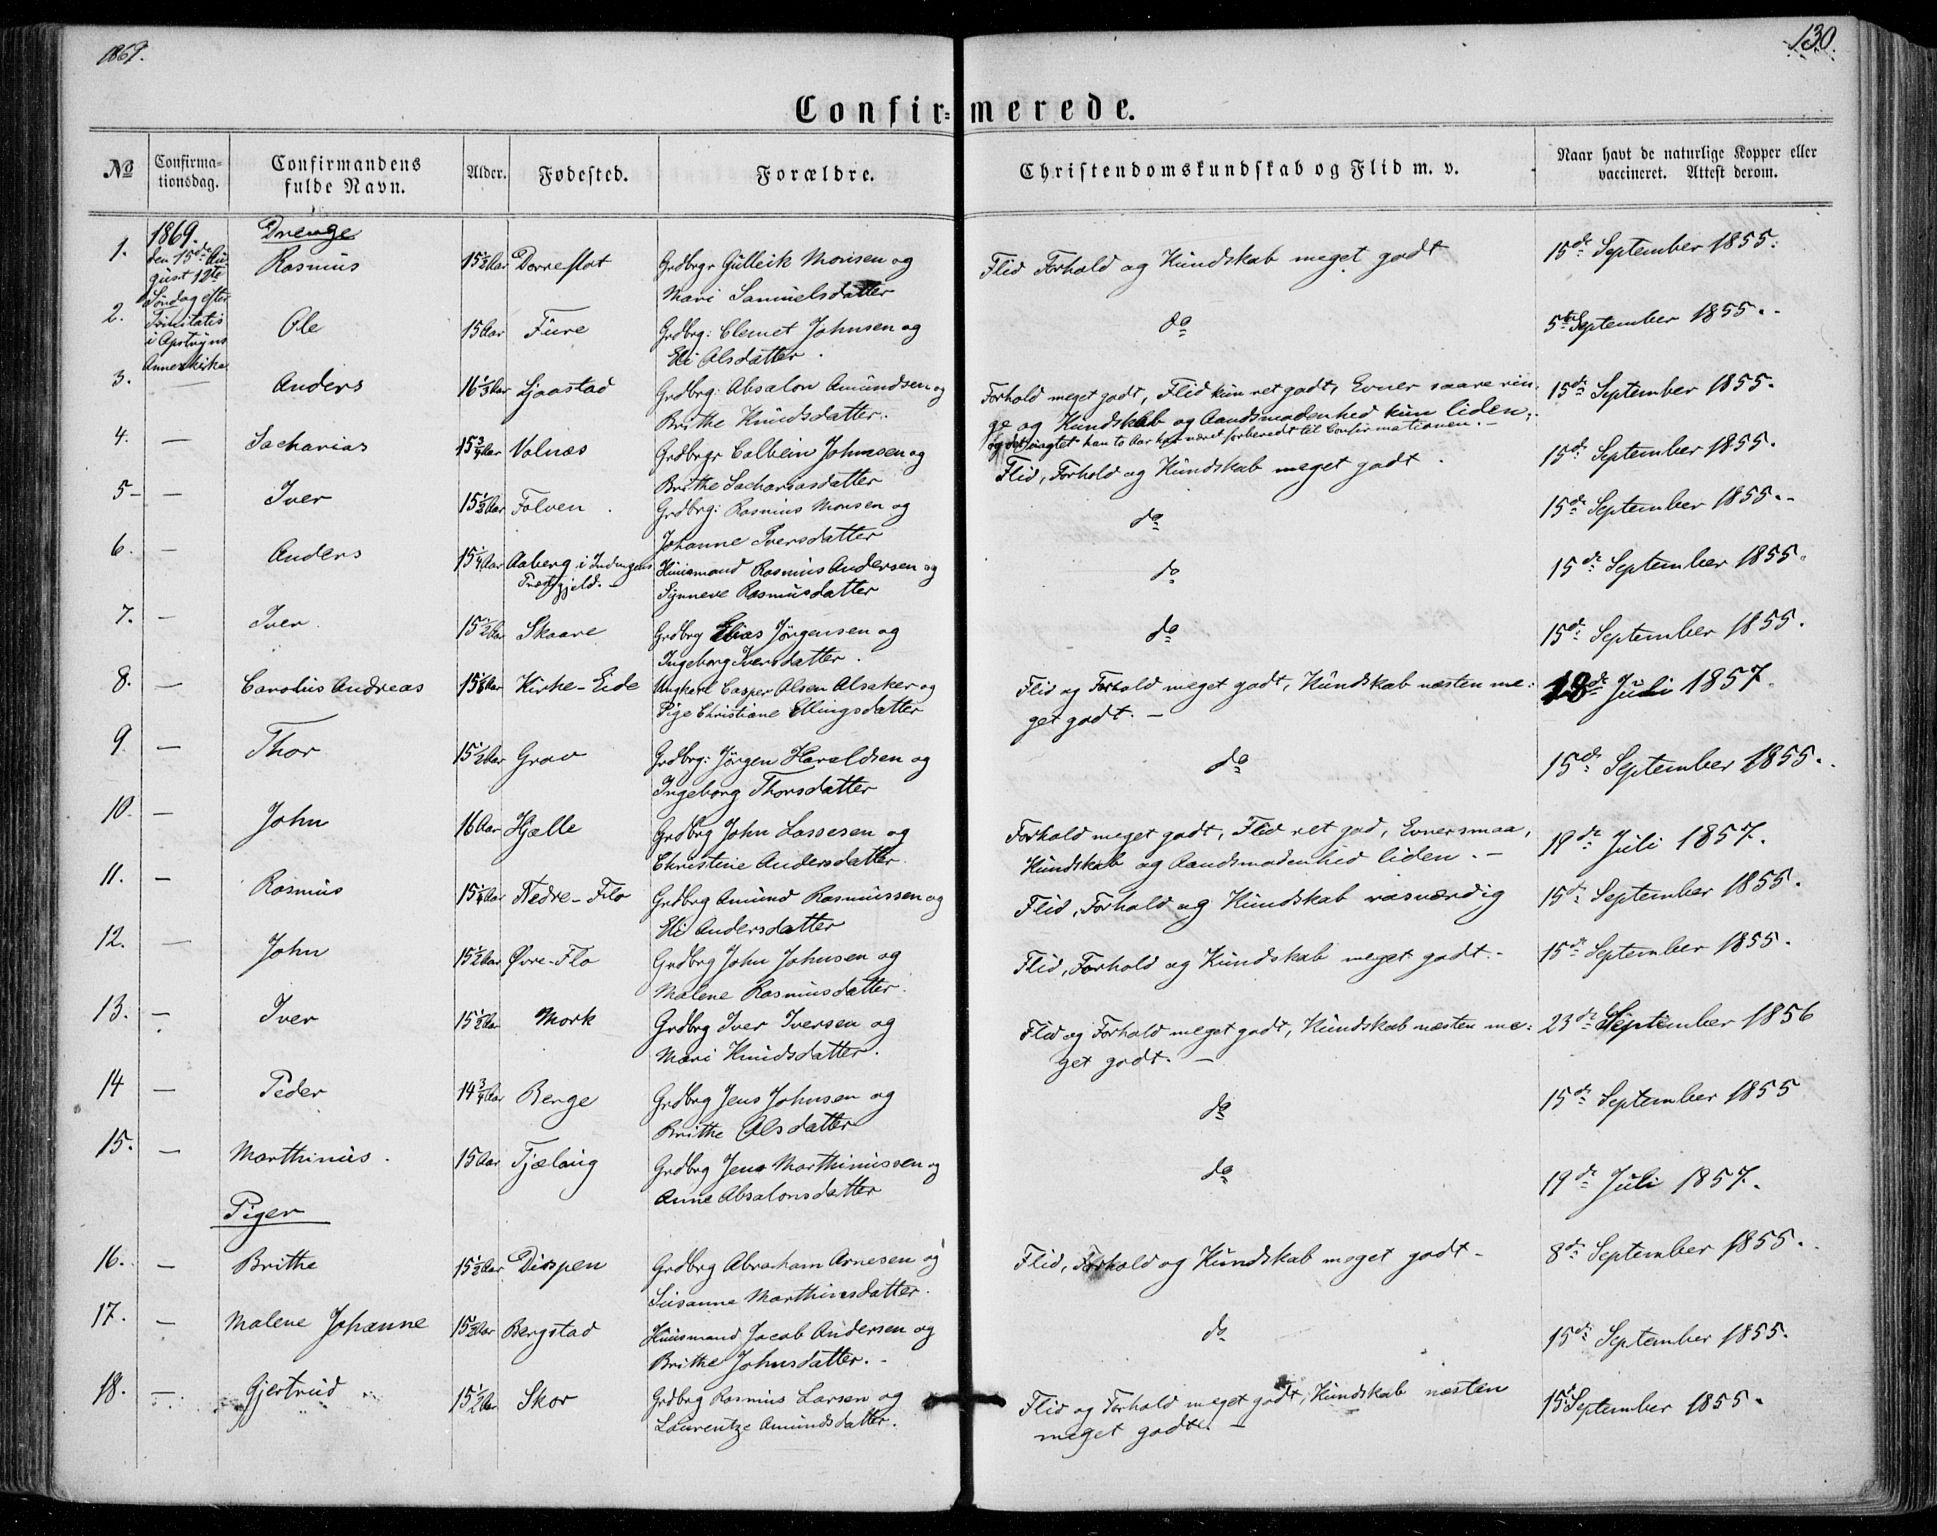 1869.
130.
Confirmerede.
No
Confirmationsdag.
Confirmandens fulde Navn.
Alder.
Fødested.
Forældre.
Christendomskundskab og Flid m. v.
Naar havt de naturlige Kopper eller vaccineret. Attest derom.
1869.
Drenge
den 15de Au
gust 12te
Søndag efter
Trinitatis
i
Annexkirke
1. Rasmus 15½ Aar Dorreflot Grdbrgr Gulleik Monsen og
Mari Samuelsdatter
Flid Forhold og Kundskab meget godt 15de September 1855.
2. Ole 15 Aar Fure Grdbrg: Clemet Johnsen og
Eli Olsdatter.
do 5te September 1855.
3. — Anders 16⅓ Aar Ljaastad Grdbrg: Absalon Amundsen og
Brithe Knudsdatter.
Forhold meget godt, Flid kun ret godt, Evner saare rin-
ge og Kundskab og Aandsmodenhed kun liden,
han to Aar været forberedt til Confirmationen. —
15de September 1855.
4. — Sacharias 15¾ Aar Volnæs Grdbrgr Colbein Johnsen og
Brithe Sachariasdatter
Flid, Forhold og Kundskab meget godt. 15de September 1855.
5 — — Iver 15½ Aar Folven. Grdbrg: Rasmus Monsen og
Johanne Iversdatter
do 15de September 1855.
6. — Anders 15¼ Aar Aaberg i Indvigens
Præstgjeld. —
Huusmand Rasmus Andersen og
Synneve Rasmusdatter
do 15de September 1855.
7. — Iver. 15½ Aar Skaare Grdbrg Elias Jørgensen og
Ingeborg Iversdatter.
do 15de September 1855.
8. — Carolus Andreas Kirke-Eide Ungkarl Casper Olsen Alsaker og
Pige Christiane Ellingsdatter
Flid og Forhold meget godt, Kundskab næsten me:
get godt. —
18de Juli 1857.
9. — Thor 15½ Aar Grov Grdbrg: Jørgen Haraldsen og
Ingeborg Thorsdatter
do 15de September 1855.
10. — John 16 Aar Hjelle Grdbrg John Lassesen og
Christine Andersdatter.
Forhold meget godt, Flid ret god, Evner smaa,
Kundskab og Aandsmodenhed liden. —
19de Juli 1857.
11. — Rasmus Nedre-Flo Grdbrg Amund Rasmussen og
Eli Andersdatter
Flid, Forhold og Kundskab rosværdig 15de September 1855.
12. — John 15½ Aar Øvre-Flo Grdbrg John Johnsen og
Malene Rasmusdatter.
Flid, Forhold og Kundskab meget godt. — 15de September 1855.
13. — Iver 15½ Aar Mork Grdbrg Iver Iversen og
Mari Knudsdatter.
Flid og Forhold meget godt, Kundskab næsten me:
get godt. —
23de September 1856
14 — Peder 14¾ Aar Berge Grdbrg Jens Johnsen og
Brithe Olsdatter
do 15de September 1855
15. — Marthinus. 15 Aar Tjelaug Grdbrg Jens Marthinussen og
Anne Absalonsdatter
do 19de Juli 1857.
Piger
16. — Brithe 15½ Aar Dispen Grdbrg Abraham Arnesen og
Susanne Marthinusdatter.
Flid, Forhold og Kundskab meget godt — 8de September 1855.
17. — Malene Johanne Bergstad Huusmand Jacob Andersen og
Brithe Johnsdatter. —
do 15de September 1855.
18. — Gjertrud 15½ Aar Skor Grdbrg Rasmus Larsen og
Laurentze Amundsdatter.
Flid og Forhold meget godt, Kundskab næsten
meget godt. —
15de September 1855.